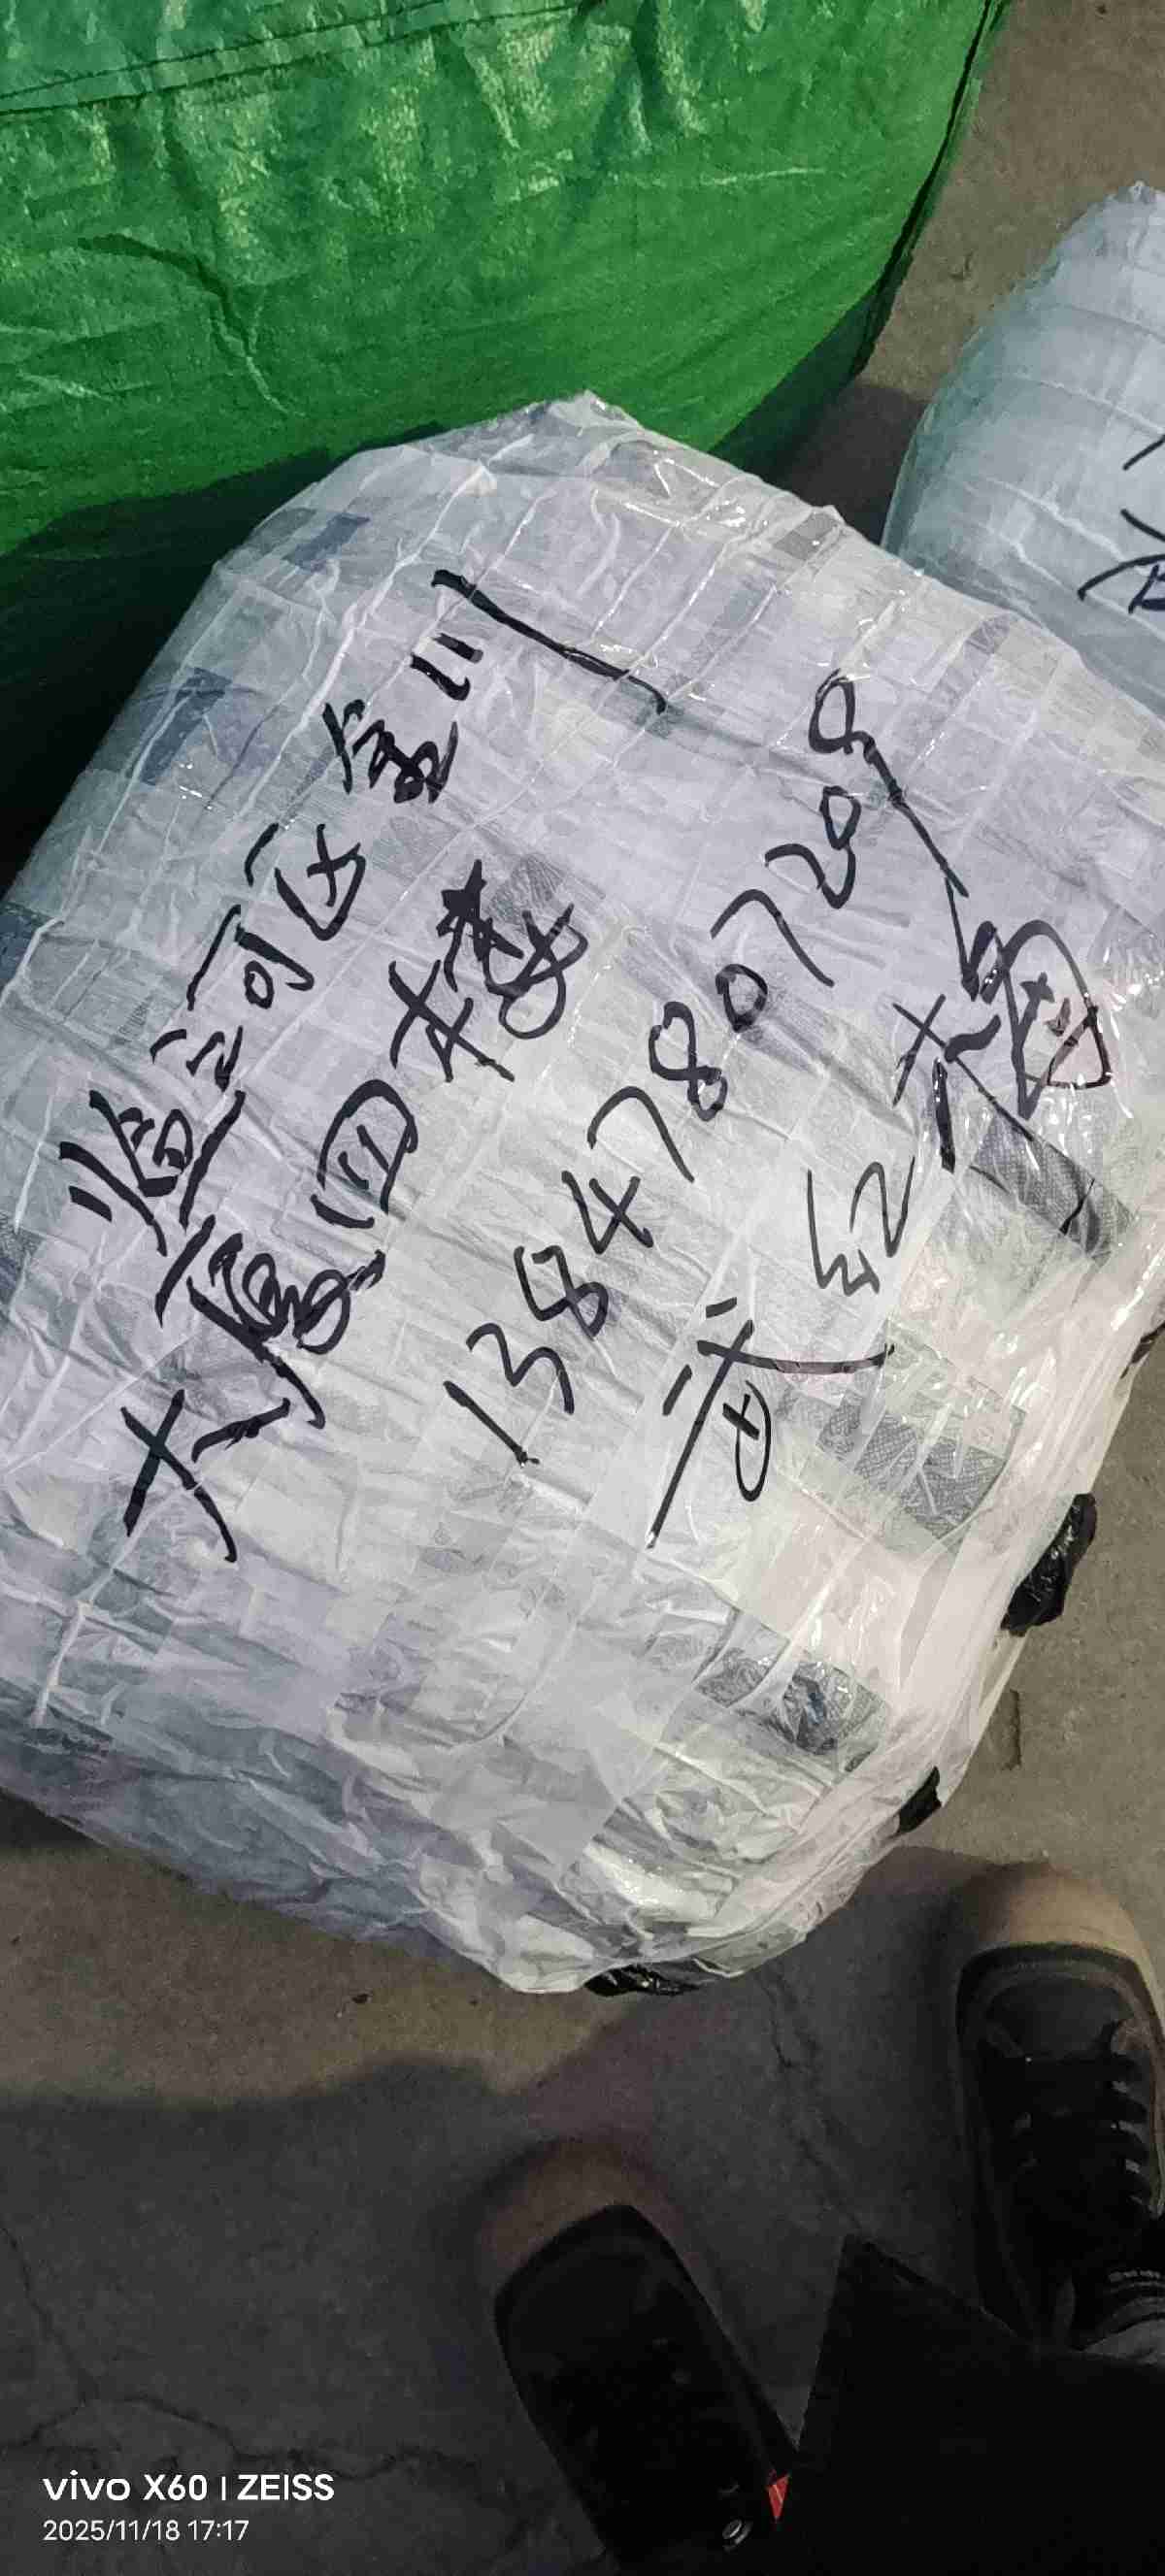 临河区金川
大厦四楼
13847807208
黄红梅
vivo X60 | ZEISS
2025/11/18 17:17